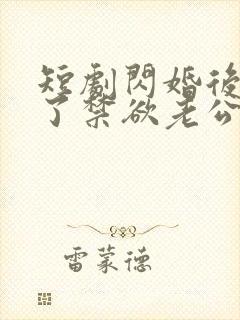 短劇閃婚後
了禁欲老公
雷蒙德